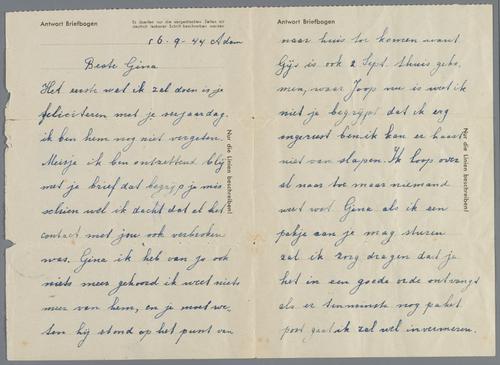 Antwort Briefbogen
Es dürfen nur die vorgedruckten Zeilen mit
deutlich lesbarer Schrift beschrieben werden
16-9-44 Adam
Beste Gina
Het eerste wat ik zal doen is je
feliciteren met je verjaardag.
ik ben hem nog niet vergeten.
Meisje ik ben ontzettend blij
met je brief dat begrijp je mis
schien wel ik dacht dat et het
contact met jou ook verbroken
was. Gina ik heb van Jo ook
niets meer gehoord ik weet niets
meer van hem, en je moet we-
ten hij stond op het punt van
Nur die Linien beschreiben!
Antwort Briefbogen
naar huis toe komen want
Gijs is ook 2 Sept. thuis geko-
men, waar Joop nu is weet ik
niet je begrijpt dat ik erg
ongerust ben. ik kan er haast
niet van slapen. Ik loop over
al naar toe maar niemand
weet wat Gina als ik een
pakje aan je mag sturen
zal ik zorg dragen dat je
het in een goede orde ontvangt
als er tenminste nog paket
post gaat ik zal wel informeren.
Nur die Linien beschreiben!